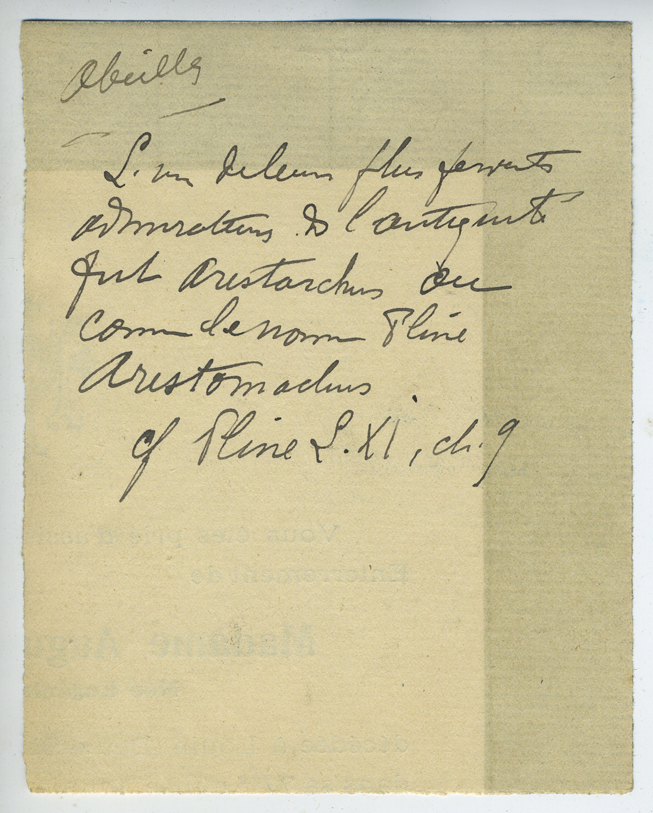 Abeilles
L'un de leurs plus fervents
admirateurs de l'antiquité
fut Arestarchus ou
comme le nomme Pline
Arestomachus
cf Pline L. XI, ch. 9
Vous êtes prié d'assis
Enterrement de
Madame Augu
Née Eugénie
décédée,